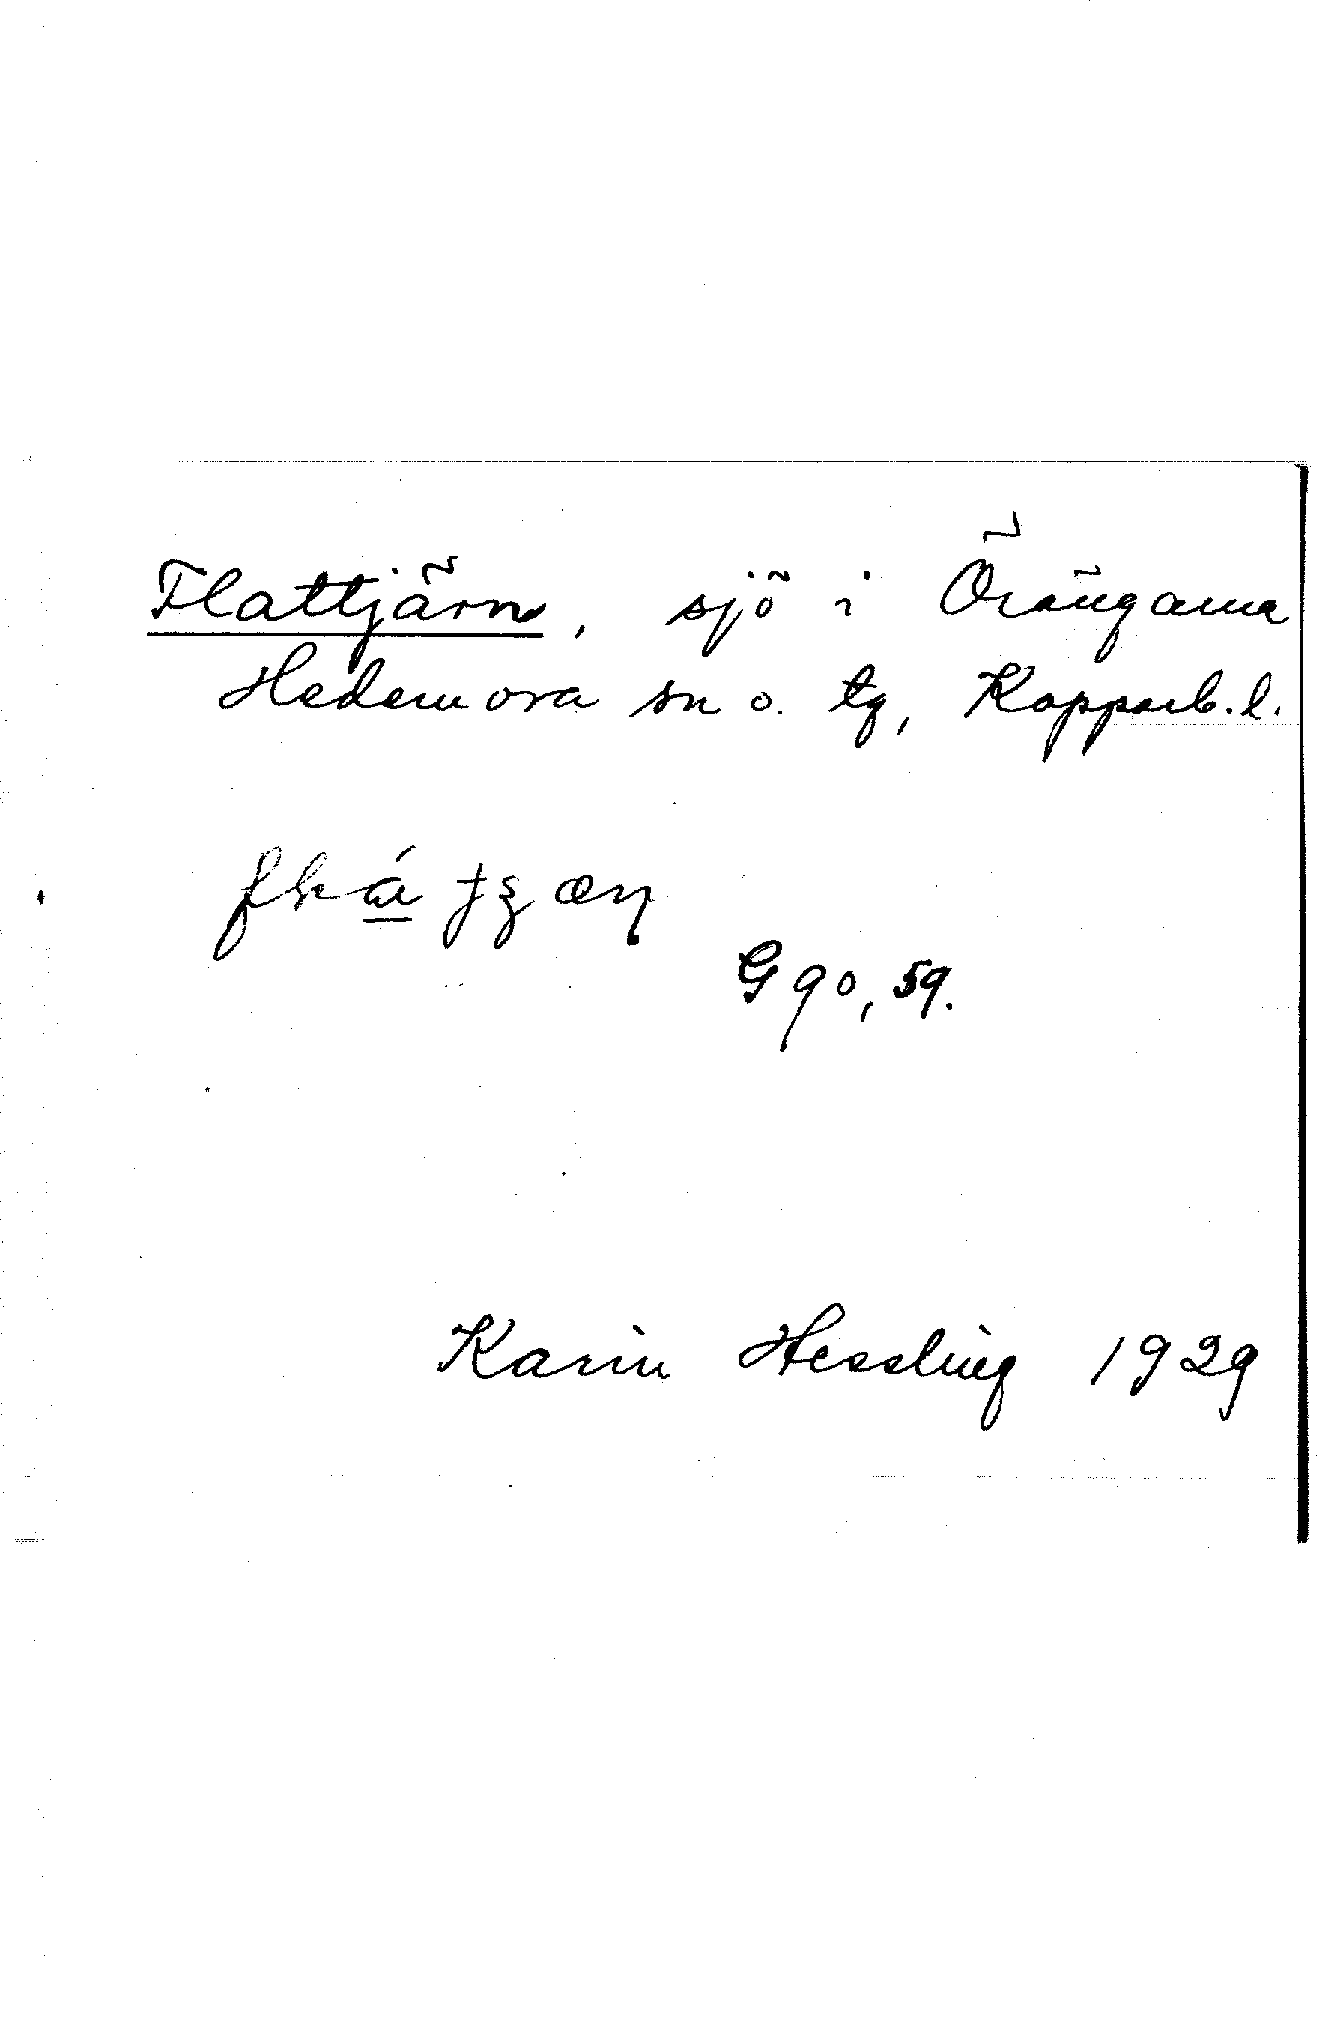 Flattjärn, sjö i Örängarna
Hedemora sn o. tg, Kopparb. l.
G 90, 59.
Karin Hessling 1929